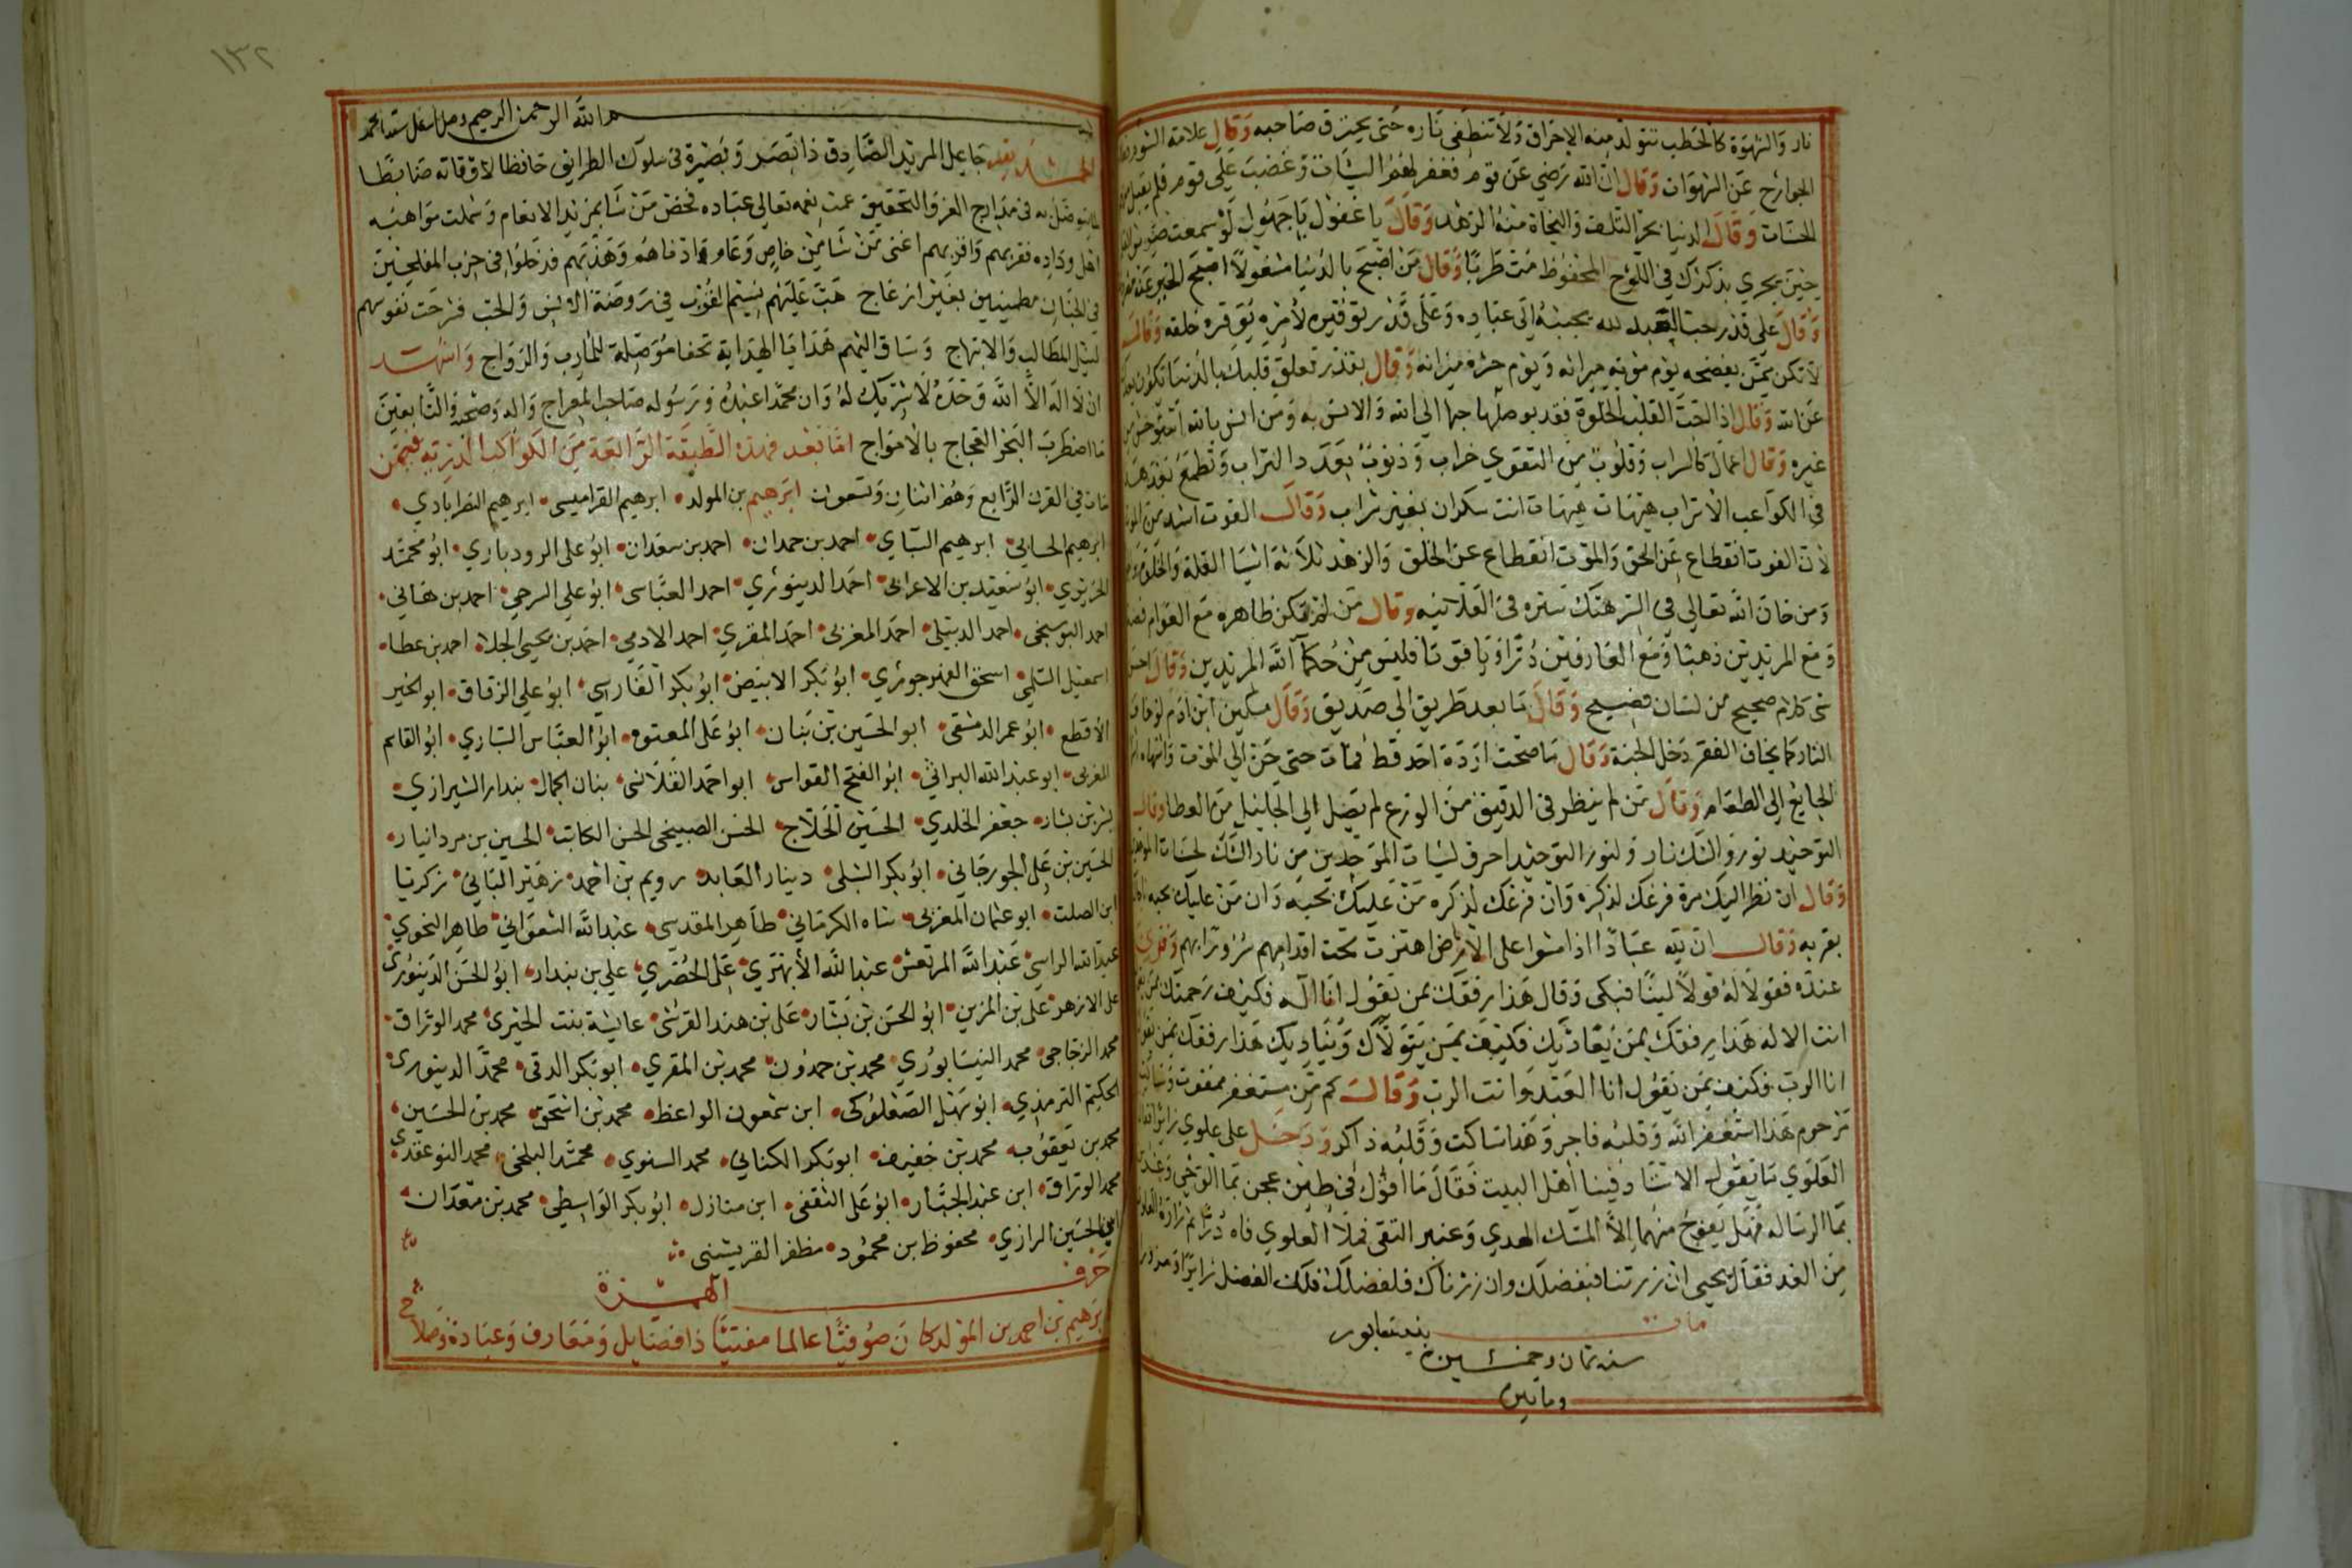 نار والشهوة كالحطب تتولد منه الاحراق ولا تنطفي ناره حتى يحترق صاحبه وقال علامة الشوق
الجوارح عن الشهوات وقال ان الله رضي عن قوم فغفر لهم السيئات وغضب على قوم فلم يقبل منهم
الحسنات وقال الدنيا بحر التلف والنجاة منه الزهد وقال يا غفول يا جهول لو سمعت صرير
حين يجري بذكرك في اللوح المحفوظ مت طربا وقال من اصبح بالدنيا مشغولا اصبح الخير عنه
وقال على قدر حب العبد لله يحببه الى عباده وعلى قدر توقيره لامره يوقره خلقه وقال
لا تكن ممن يفضحه يوم موته ميراثه ويوم حشره ميزانه وقال بقدر تعلق قلبك بالدنيا يكون
عن الله وقال اذا احب القلب الخلوة فقد يوصلها حبها الى الله والانس به ومن انس بالله استوحش من
غيره وقال اعمال كالسراب وقلوب من التقوي خراب وذنوب بعدد التراب وتطمع
في الكواعب الاتراب هيهات هيهات انت سكران بغير شراب وقال الفوت اشد من الموت
لان الفوت انقطاع عن الحق والموت انقطاع عن الخلق والزهد ثلاثة اشيا القلة والخلوة
ومن خان الله تعالي في السر هتك ستره في العلانيه وقال من لم يكن ظاهره مع العوام فضة
ومع المريدين ذهبا ومع العارفين درا وياقوتا فليس من حكماء الله المريدين وقال احسن
شي كلام صحيح من لسان فصيح وقال ما بعد طريق الي صديق وقال مسكين ابن ادم لو خاف
النار كما يخاف الفقر دخل الجنة وقال ما صحت ارادة احد قط فمات حتى حن الي الموت واشتهاه
الجايع الي الطعام وقال من لم ينظر في الدقيق من الورع لم يصل الي الجليل من العطا وقال
التوحيد نور والشك نار ولنور التوحيد احرق لسيات الموحدين من نار الشك لحسنات
وقال ان نظر اليك مرة فرغك لذكره وان فرغك لذكره من عليك بحبه وان من عليك بحبه
بقربه وقال ان لله عبادا اذا مشوا على الارض اهتزت تحت اقدامهم سرورا بهم وقري
عنده فقولا له قولا لينا فبكى وقال هذا رفقك بمن يقول انا اله فكيف رحمتك بمن
انت الاله هذا رفقك بمن يعاديك فكيف بمن يتولاك ويناديك هذا رفقك بمن يقول
انا الرب فكيف بمن يقول انا العبد وانت الرب وقال كم من مستغفر ممقوت وساكت
مرحوم هذا استغفر الله وقلبه فاجر وهذا ساكت وقلبه ذاكر ودخل على علوي زايرا
العلوي ما تقول الاستاذ فينا اهل البيت فقال ما اقول في طين عجن بما الوحي
بما الرساله فهل يفوح منهما الا المسك الهدي وعنبر التقى فملأ العلوي فاه درا ثم زاره
من الغد فقال يحيى ان زرتنا فبفضلك وان زرناك فلفضلك فلك الفضل زايرا ومزورا
مات بنيسابور
سنة ثمان وخمسين
ومايتين
١٣٢
بسم الله الرحمن الرحيم
الحمد لله جاعل المريد الصادق ذا بصر وبصيرة في سلوك الطرايق حافظا لاوقاته ضابطا
في مدارج العز والتحقيق عمت نعمه تعالي عباده فخص من شا بمزيد الانعام وشملت مواهبه
اهل وداده فقربهم اعنى من شا من خاص وعام وهذبهم فدخلوا في حزب المفلحين
في الجنان مطمينين بغير ازعاج هب عليهم نسيم القرب في روضة الانس والحب فرحت نفوسهم
لنيل المطالب والابتهاج وساق اليهم هدايا الهداية تحفا موصلة للمارب والرواج واشهد
ان لا اله الا الله وحده لا شريك له وان محمدا عبده ورسوله صاحب المعراج واله وصحبه والتابعين
ما اضطرب البحر العجاج بالامواج اما بعد فهذه الطبقة الرابعة من الكواكب الدرية فيمن
مات في القرن الرابع وهم اثنان وتسعون ابرهيم بن المولد ابرهيم القرميسى ابرهيم النصراباذي
ابرهيم ابرهيم احمد بن حمدان احمد بن سعدان ابو على الروذباري ابو محمد
الجريري ابو سعيد بن الاعرابى احمد الدينوري احمد العباسى ابو علي احمد بن هاني
احمد البوسنجى احمد الدبيلي احمد المغربى احمد المقري احمد الادمي احمد بن يحيى الجلا احمد بن عطا
اسمعيل السلمي اسحق النهرجوري ابو بكر الابيض ابو بكر الفارسي ابو علي الزقاق ابو الخير
الاقطع ابو عمر الدمشقى ابو الحسين بن بنان ابو على المعتوه ابو العباس السياري ابو القاسم
المغربى ابو عبد الله البراثي ابو الفتح القواس ابو احمد القلانسى بنان الجمال بندار الشيرازي
بشر بن بشار جعفر الخلدي الحسين الحلاج الحسن الصبيحى الحسن الكاتب الحسين بن يزدانيار
الحسين بن على الجورجاني ابو بكر الشبلى دينار العابد رويم بن احمد زهير البابي زكريا
ابن الصلت ابو عثمان المغربى شاه الكرماني طاهر المقدسي عبد الله الشعراني طاهر النحوي
عبد الله الراسبي عبد الله المرتعش عبد الله الابهري على الحصري علي بن بندار ابو الحسن الدينوري
على الازهر على بن المزين ابو الحسن بن بشار على بن هند القرشى عايشة بنت الحيرى محمد الوراق
محمد الزجاجى محمد النيسابوري محمد بن حمدون محمد بن المقري ابو بكر الدقى محمد الدينورى
الحكيم الترمذي ابو سهل الصعلوكى ابن سمعون الواعظ محمد بن اسحق محمد بن الحسين
محمد بن يعقوب محمد بن خفيف ابو بكر الكتاني محمد السنوي محمد البلخى محمد
محمد الوراق ابن عبد الجبار ابو على الثقفى ابن منازل ابو بكر الواسطي محمد بن معدان
ابي الحسين الرازي محفوظ بن محمود مظفر القرميسنى
حرف الهمزة
ابرهيم بن احمد بن المولد كان صوفيا عالما مفتيا ذا فضايل ومعارف وعبادة